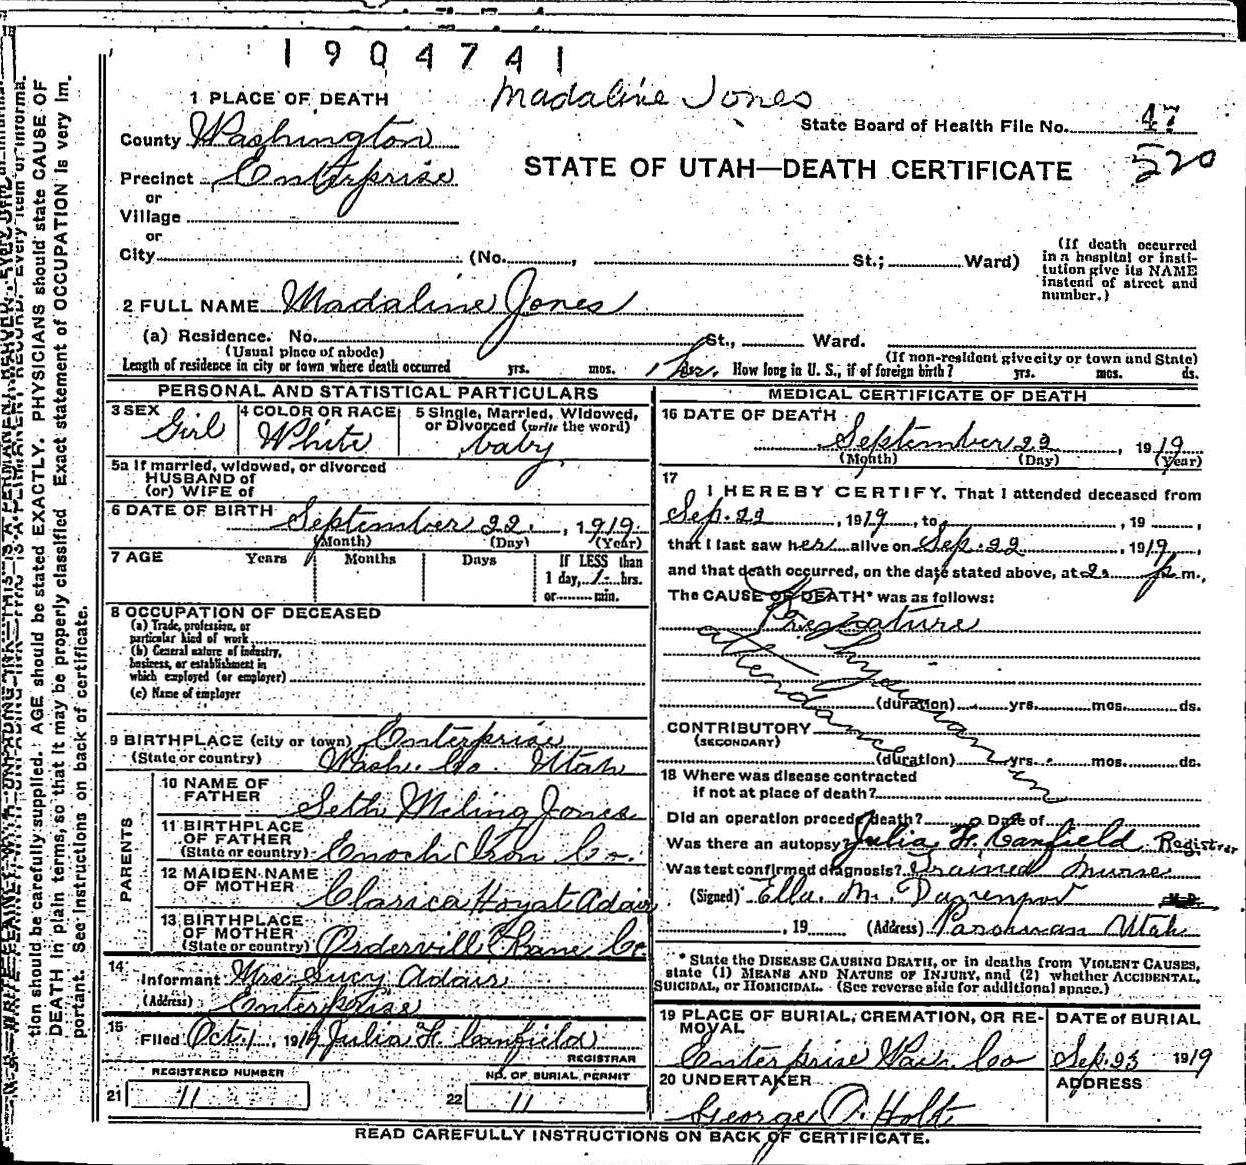 1904741
Madaline Jones
1 PLACE OF DEATH
State Board of Health File No. 47
County Washington
STATE OF UTAH—DEATH CERTIFICATE 520
Precinct Enterprise
or
Village
or
City (No. , St.; Ward)
(If death occurred in a hospital or insti-
tution give its NAME
instead of street and
number.)
2 FULL NAME Madaline Jones
(a) Residence. No. St., Ward.
(Usual place of abode) (If non-resident give city or town and State)
Length of residence in city or town where death occurred yrs. mos. 1 hr. ds. How long in U. S., if of foreign birth? yrs. mos. ds.
PERSONAL AND STATISTICAL PARTICULARS
3 SEX Girl
4 COLOR OR RACE White
5 Single, Married, Widowed,
or Divorced (write the word)
baby
5a If married, widowed, or divorced
HUSBAND of
(or) WIFE of
6 DATE OF BIRTH September 22, 1919
(Month) (Day) (Year)
7 AGE Years Months Days If LESS than
1 day, 1 hrs.
or min.
8 OCCUPATION OF DECEASED
(a) Trade, profession, or
particular kind of work
(b) General nature of industry,
business, or establishment in
which employed (or employer)
(c) Name of employer
9 BIRTHPLACE (city or town) Enterprise
(State or country) Wash. Co. Utah
PARENTS
10 NAME OF
FATHER Seth Meling Jones
11 BIRTHPLACE
OF FATHER
(State or country) Enoch Iron Co.
12 MAIDEN NAME
OF MOTHER Clarica Hoyat Adair
13 BIRTHPLACE
OF MOTHER
(State or country) Orderville Kane Co.
14 Informant Mrs Lucy Adair
(Address) Enterprise
15 Filed Oct. 1, 1919 Julia F. Canfield
REGISTRAR
REGISTERED NUMBER
21 11
NO. OF BURIAL PERMIT
22 11
MEDICAL CERTIFICATE OF DEATH
16 DATE OF DEATH
September 22, 1919
(Month) (Day) (Year)
17 I HEREBY CERTIFY, That I attended deceased from
Sep. 22, 1919, to , 19 ,
that I last saw her alive on Sep. 22, 1919,
and that death occurred, on the date stated above, at 2 p m.,
The CAUSE OF DEATH* was as follows:
Premature
No physician in
attendance
(duration) yrs. mos. ds.
CONTRIBUTORY
(SECONDARY)
(duration) yrs. mos. ds.
18 Where was disease contracted
if not at place of death?
Did an operation precede death? Date of
Was there an autopsy? Julia F. Canfield Registrar
Was test confirmed diagnosis? Trained nurse
(Signed) Ella M. M.D.
, 19 (Address) Parowan Utah
* State the DISEASE CAUSING DEATH, or in deaths from VIOLENT CAUSES,
state (1) MEANS AND NATURE OF INJURY, and (2) whether ACCIDENTAL,
SUICIDAL, or HOMICIDAL. (See reverse side for additional space.)
19 PLACE OF BURIAL, CREMATION, OR RE-
MOVAL
Enterprise Wash. Co
DATE of BURIAL
Sep. 23 1919
20 UNDERTAKER
George O. Holt
ADDRESS
READ CAREFULLY INSTRUCTIONS ON BACK OF CERTIFICATE.
tion should be carefully supplied. AGE should be stated EXACTLY. PHYSICIANS should state CAUSE OF
DEATH in plain terms, so that it may be properly classified. Exact statement of OCCUPATION is very im.
portant. See instructions on back of certificate.